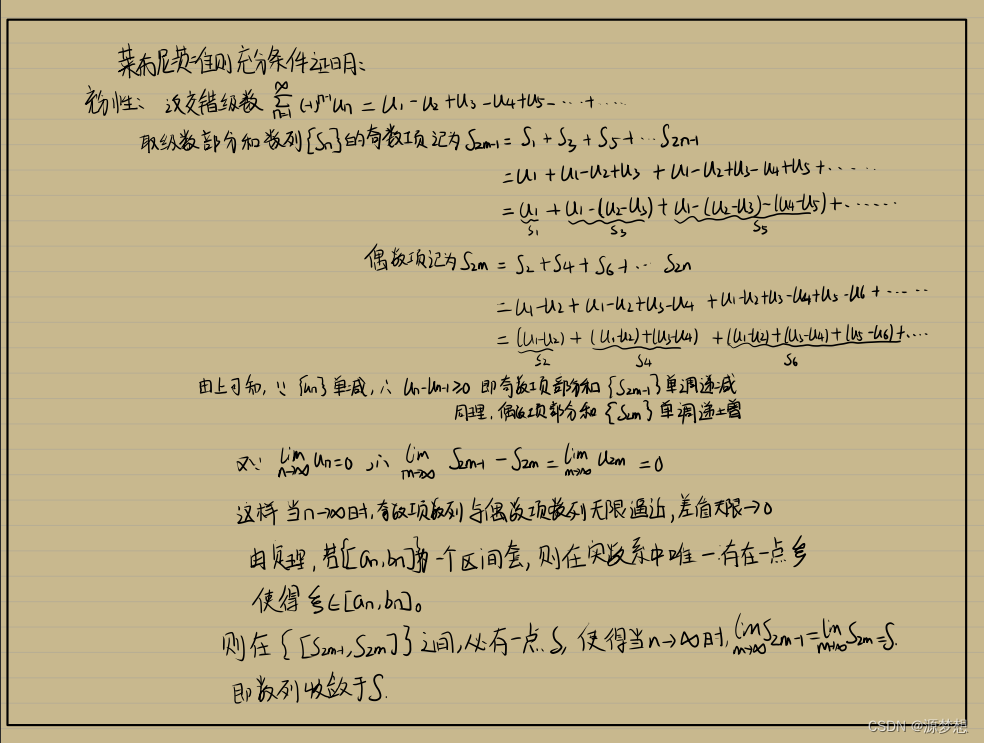 莱布尼茨准则充分条件证明:
充分性: 设交错级数 ∞∑n=1 (-1)ⁿ⁻¹ un = u1 - u2 + u3 - u4 + u5 - ··· + ····
取级数部分和数列{Sn}的奇数项记为S2m-1 = S1 + S3 + S5 + ··· S2n-1
= u1 + u1 - u2 + u3 + u1 - u2 + u3 - u4 + u5 + ······
= u1 + u1 - (u2 - u3) + u1 - (u2 - u3) - (u4 - u5) + ······
S1 S3 S5
偶数项记为S2m = S2 + S4 + S6 + ··· S2n
= u1 - u2 + u1 - u2 + u3 - u4 + u1 - u2 + u3 - u4 + u5 - u6 + ······
= (u1 - u2) + (u1 - u2) + (u3 - u4) + (u1 - u2) + (u3 - u4) + (u5 - u6) + ····
S2 S4 S6
由上可知, ∵ {un}单减, ∴ un - un-1 ≥ 0 即奇数项部分和{S2m-1}单调递减
同理, 偶数项部分和{S2m}单调递增
又∵ lim n→∞ un = 0, ∴ lim m→∞ S2m-1 - S2m = lim m→∞ u2m = 0
这样当n→∞时, 奇数项数列与偶数项数列无限逼近, 差值无限→0
由定理, 若{[an, bn]}为一个区间套, 则在实数系中唯一存在一点ξ
使得 ξ∈[an, bn]。
则在{[S2m-1, S2m]}之间, 必有一点S, 使得当n→∞时, lim m→∞ S2m-1 = lim m→∞ S2m = S.
即数列收敛于S.
CSDN @源梦想